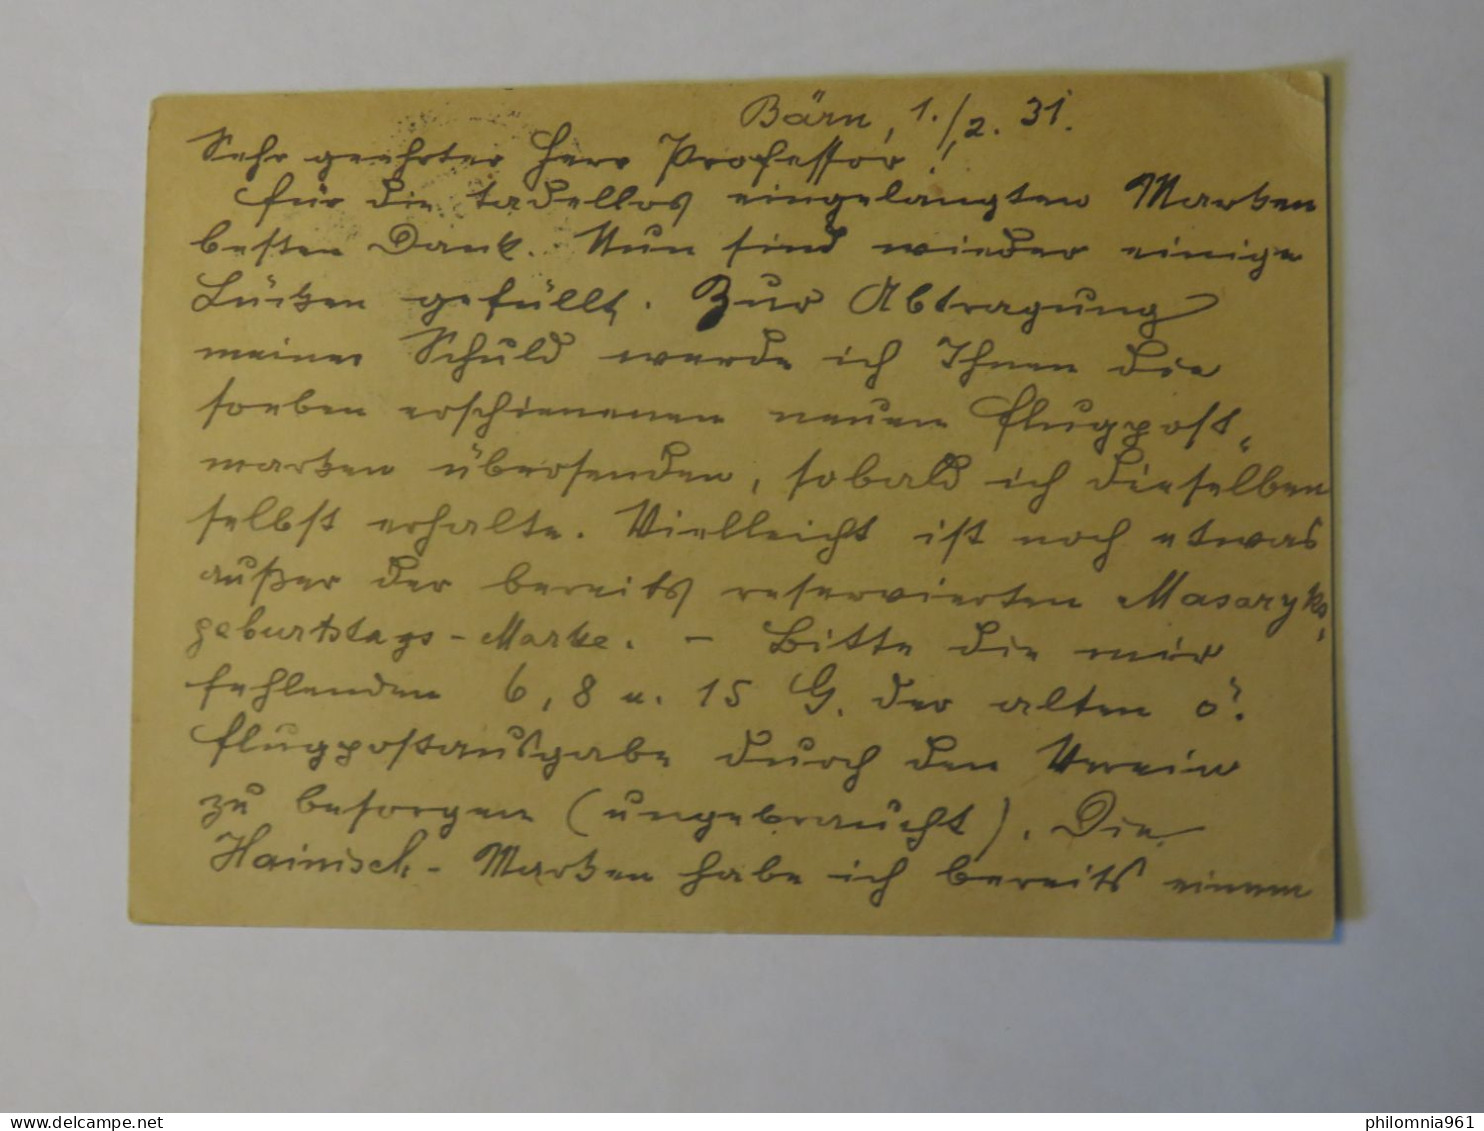 Bärn, 1./2. 31.
Sehr geehrter Herr Professor!
Für die tadellos eingelangten Marken
besten Dank. Nun sind wieder einige
Lücken gefüllt. Zur Abtragung
meiner Schuld werde ich Ihnen die
soeben erschienenen neuen Flugpost„
marken übersenden, sobald ich dieselben
selbst erhalte. Vielleicht ist noch etwas
außer der bereits reservierten Masaryks
geburtstags-Marke. - Bitte die mir
fehlenden 6, 8 u. 15 G. der alten ö.
Flugpostausgabe durch den Verein
zu besorgen (ungebraucht). Die
Hainisch-Marken habe ich bereits einem
philomnia961